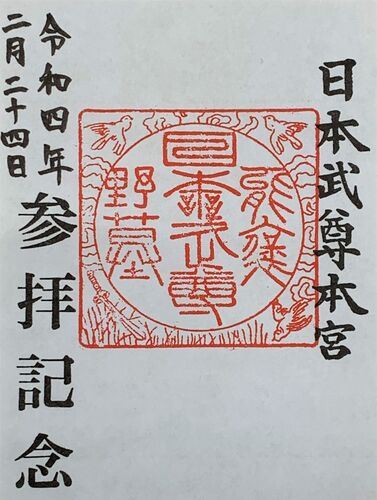 日本武尊本宮
能褒
日本武尊
野墓
令和四年
二月二十四日
参拝記念